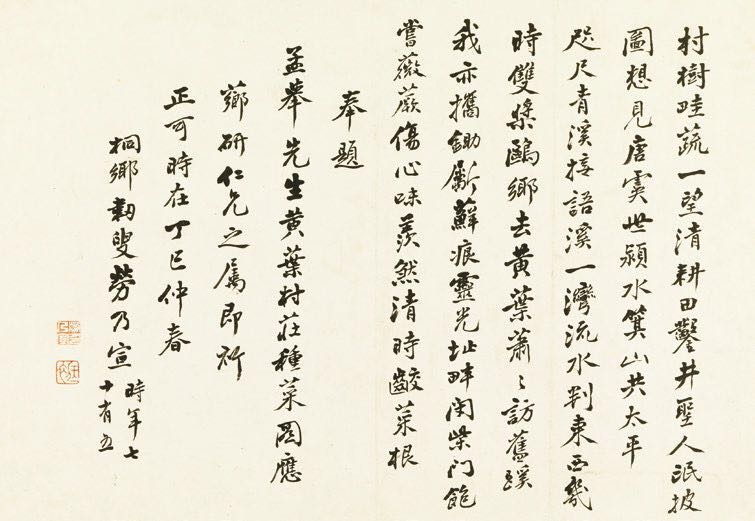 村樹畦蔬一望清耕田鑿井聖人氓披
圖想見唐虞世潁水箕山共太平
咫尺青溪接語溪一灣流水判東西幾
時雙槳鷗鄉去黃葉蕭〻訪舊蹊
我亦攜鋤斸蘚痕靈光址畔閉柴門飽
嘗薇蕨傷心味羨煞清時齩菜根
奉題
孟舉先生黃葉村莊種菜圖應
薌研仁兄之屬即祈
正可時在丁巳仲春
桐鄉韌叟勞乃宣
時年七
十有五